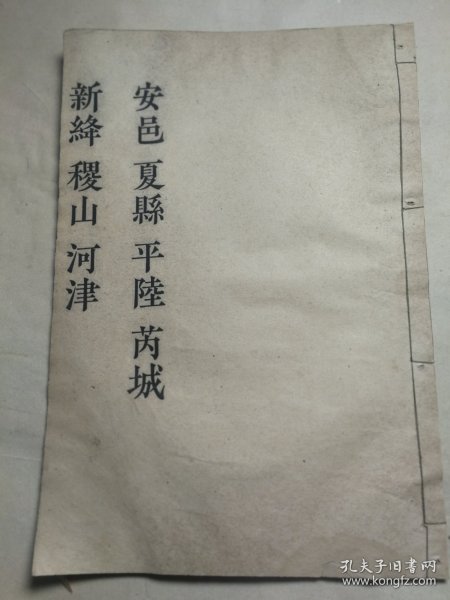 安邑 夏縣 平陸 芮城
新絳 稷山 河津
孔夫子旧书网
www.kongfz.com